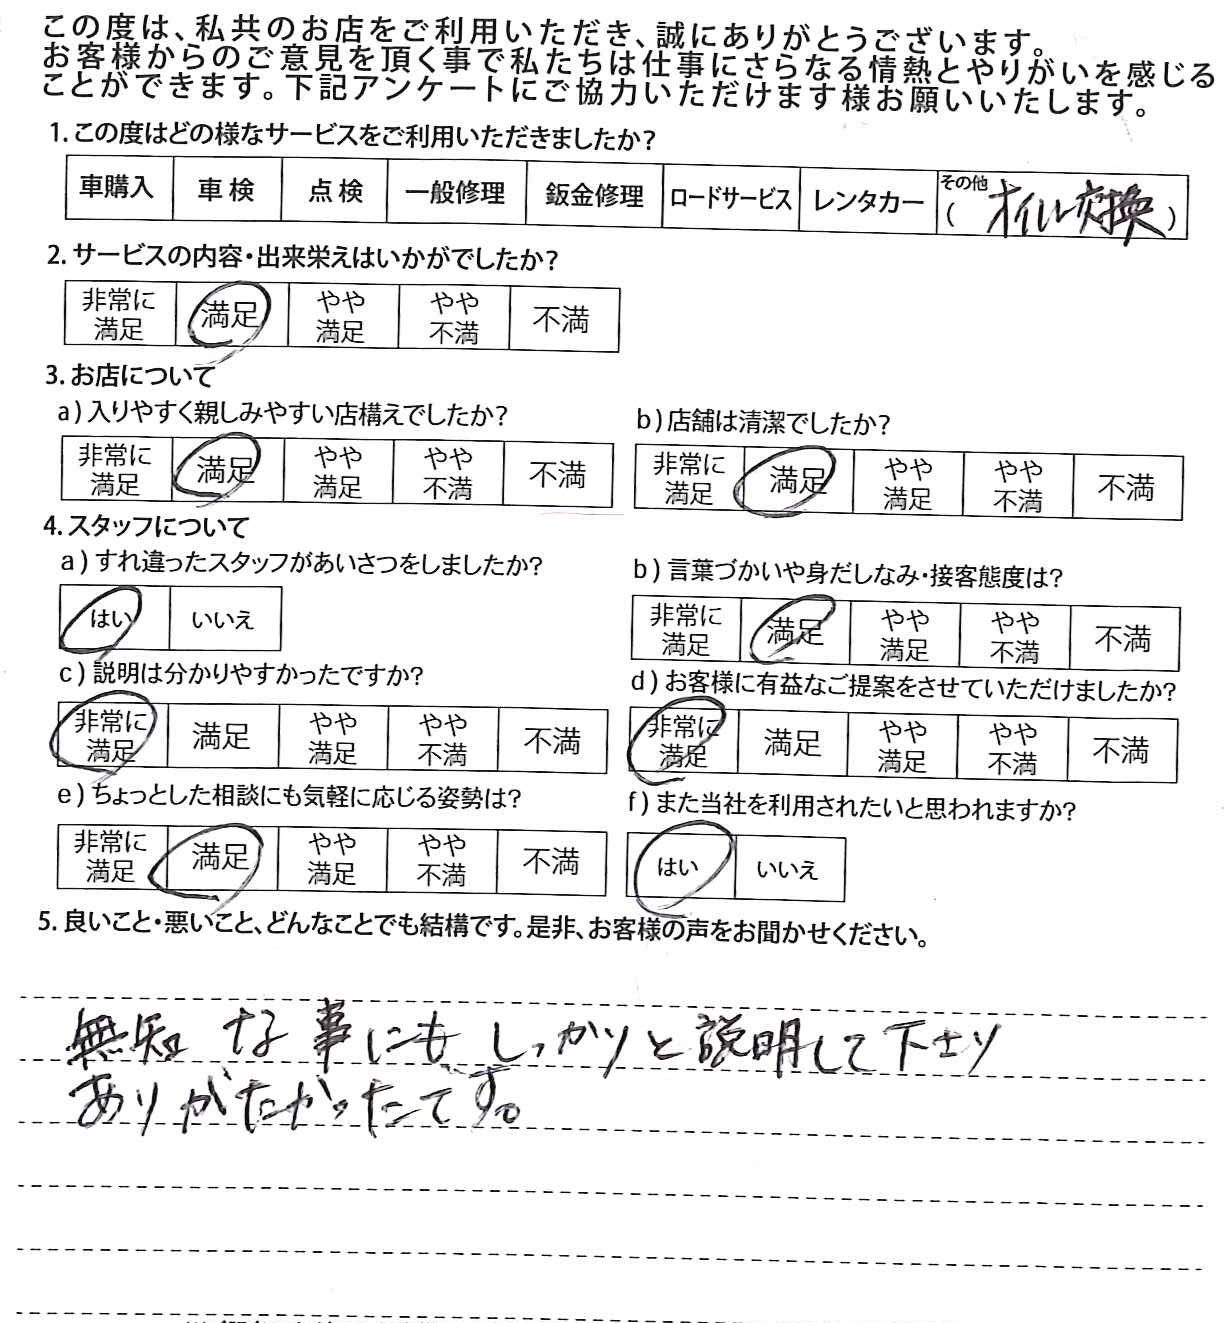 この度は、私共のお店をご利用いただき、誠にありがとうございます。
お客様からのご意見を頂く事で私たちは仕事にさらなる情熱とやりがいを感じる
ことができます。下記アンケートにご協力いただけます様お願いいたします。
1. この度はどの様なサービスをご利用いただきましたか?
車購入 車検 点検 一般修理 鈑金修理 ロードサービス レンタカー その他
( オイル交換 )
2. サービスの内容・出来栄えはいかがでしたか?
非常に満足 満足 やや満足 やや不満 不満
3. お店について
a) 入りやすく親しみやすい店構えでしたか?
非常に満足 満足 やや満足 やや不満 不満
b) 店舗は清潔でしたか?
非常に満足 満足 やや満足 やや不満 不満
4. スタッフについて
a) すれ違ったスタッフがあいさつをしましたか?
はい いいえ
b) 言葉づかいや身だしなみ・接客態度は?
非常に満足 満足 やや満足 やや不満 不満
c) 説明は分かりやすかったですか?
非常に満足 満足 やや満足 やや不満 不満
d) お客様に有益なご提案をさせていただけましたか?
非常に満足 満足 やや満足 やや不満 不満
e) ちょっとした相談にも気軽に応じる姿勢は?
非常に満足 満足 やや満足 やや不満 不満
f) また当社を利用されたいと思われますか?
はい いいえ
5. 良いこと・悪いこと、どんなことでも結構です。是非、お客様の声をお聞かせください。
無知な事にも、しっかりと説明して下さり
ありがたかったてす。